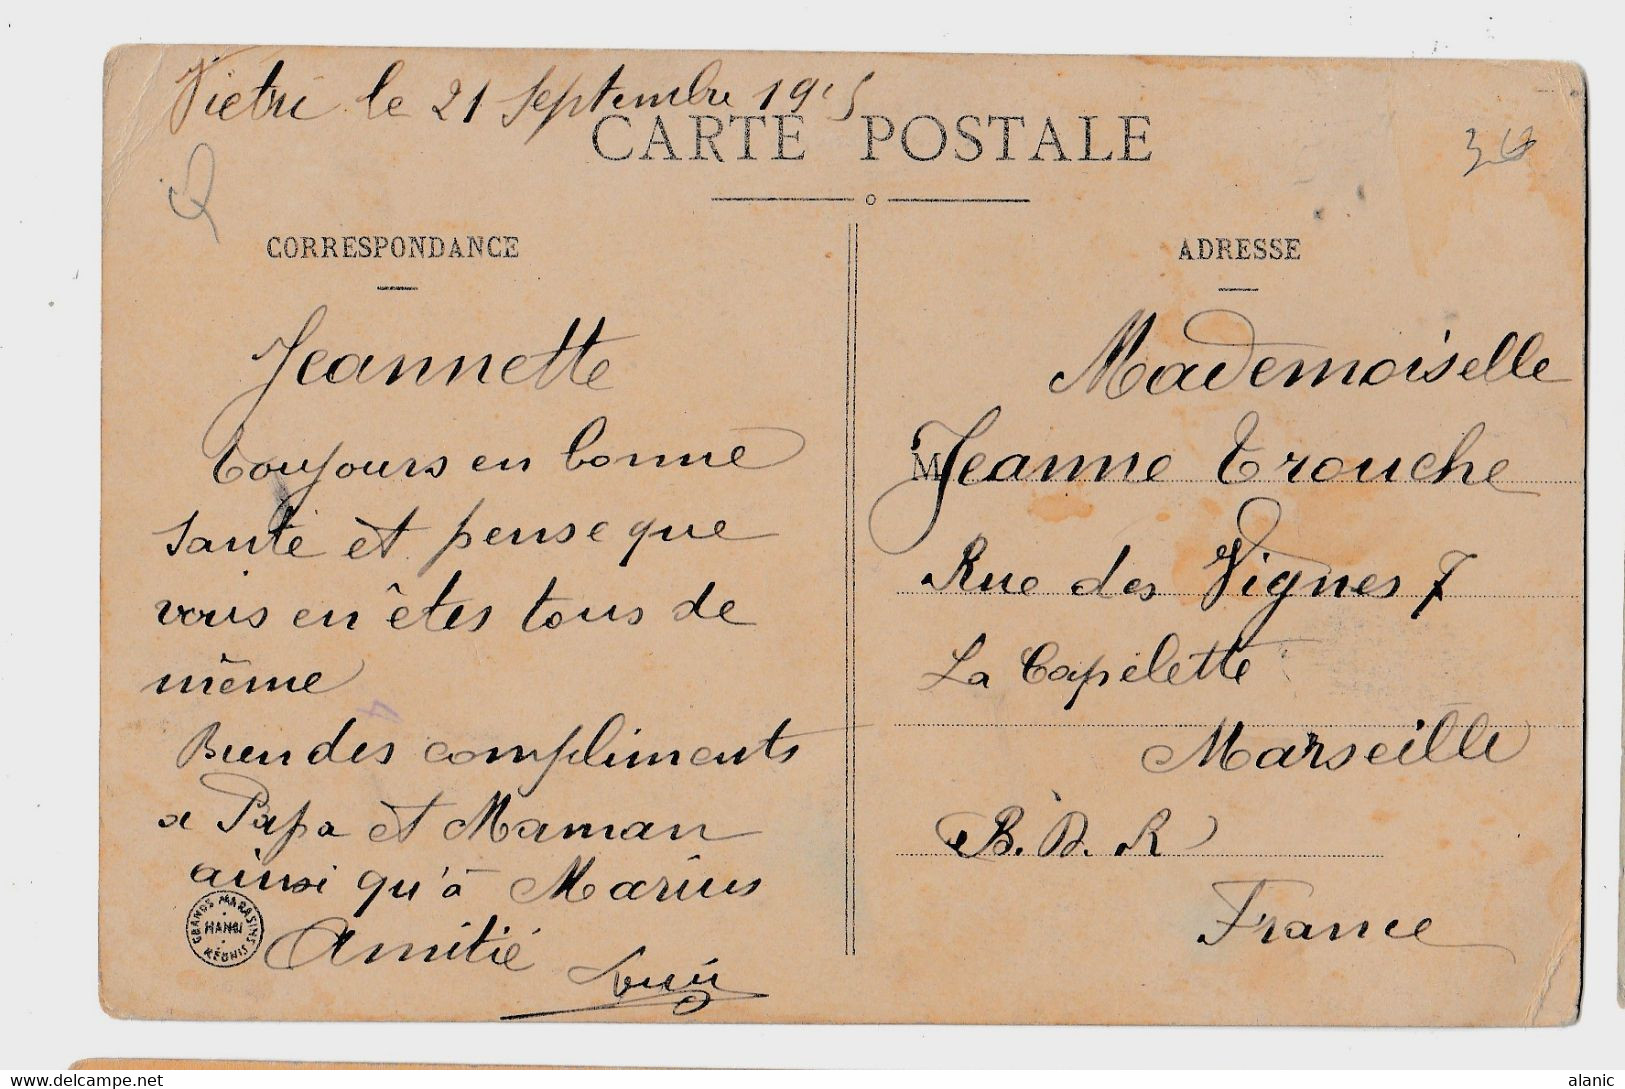 Vietri le 21 Septembre 19
CARTE POSTALE
CORRESPONDANCE
Jeannette
Toujours en bonne
Santé et pense que
vous en êtes tous de
même
Bien des compliments
a Papa et Maman
ainsi qu'à Marius
Amitié
GRANDS MAGASINS
HANOI
RÉUNIS
ADRESSE
Mademoiselle
M Jeanne Trouche
Rue des Vignes 7
La Capelette
Marseille
B. D. R
France
www.delcampe.net
alanic